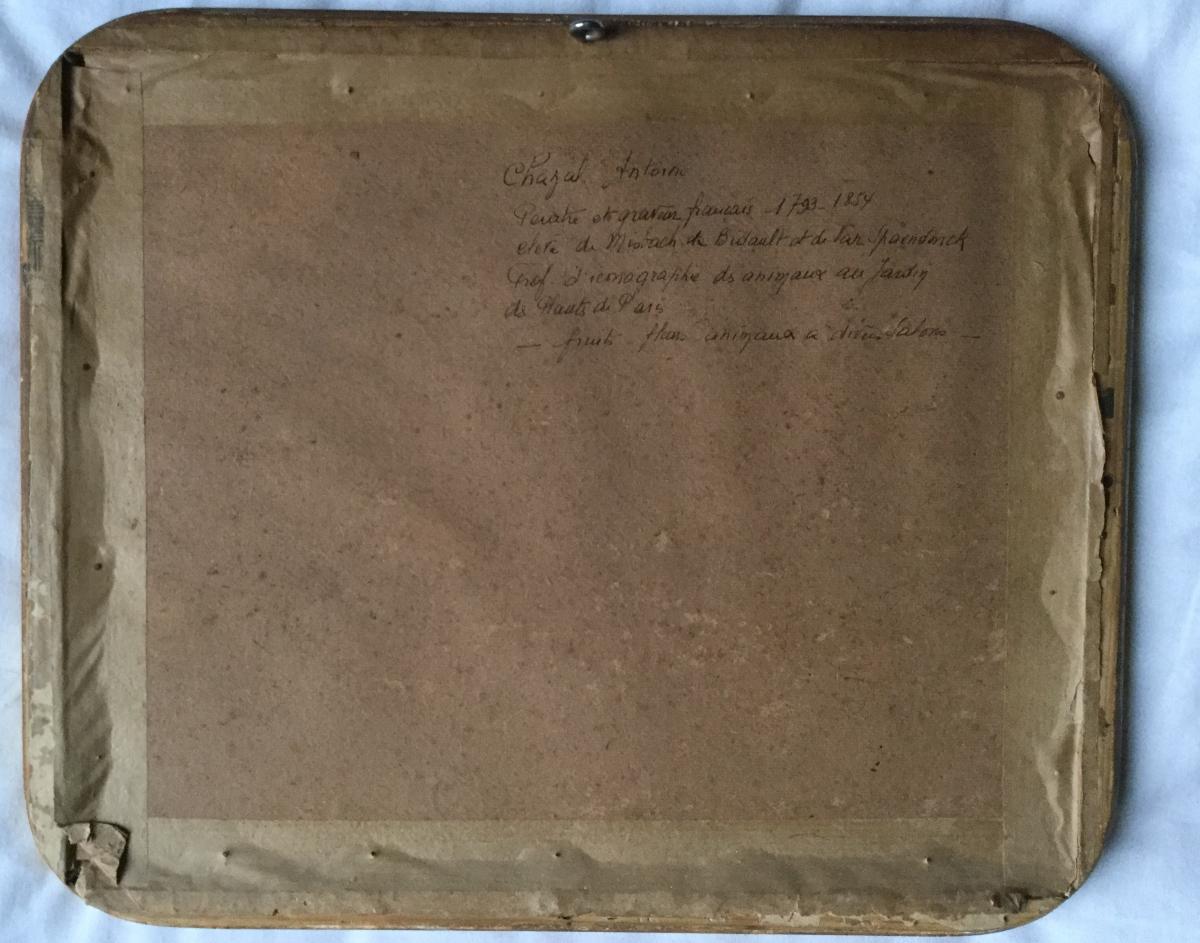 Chazal Antoine
Peintre et graveur français - 1793 - 1854
élève de Misbach de Bidault et de Van Spaendonck
Prof. d'iconographie des animaux au Jardin
des Plantes de Paris
— fruits fleurs animaux a divers Salons —